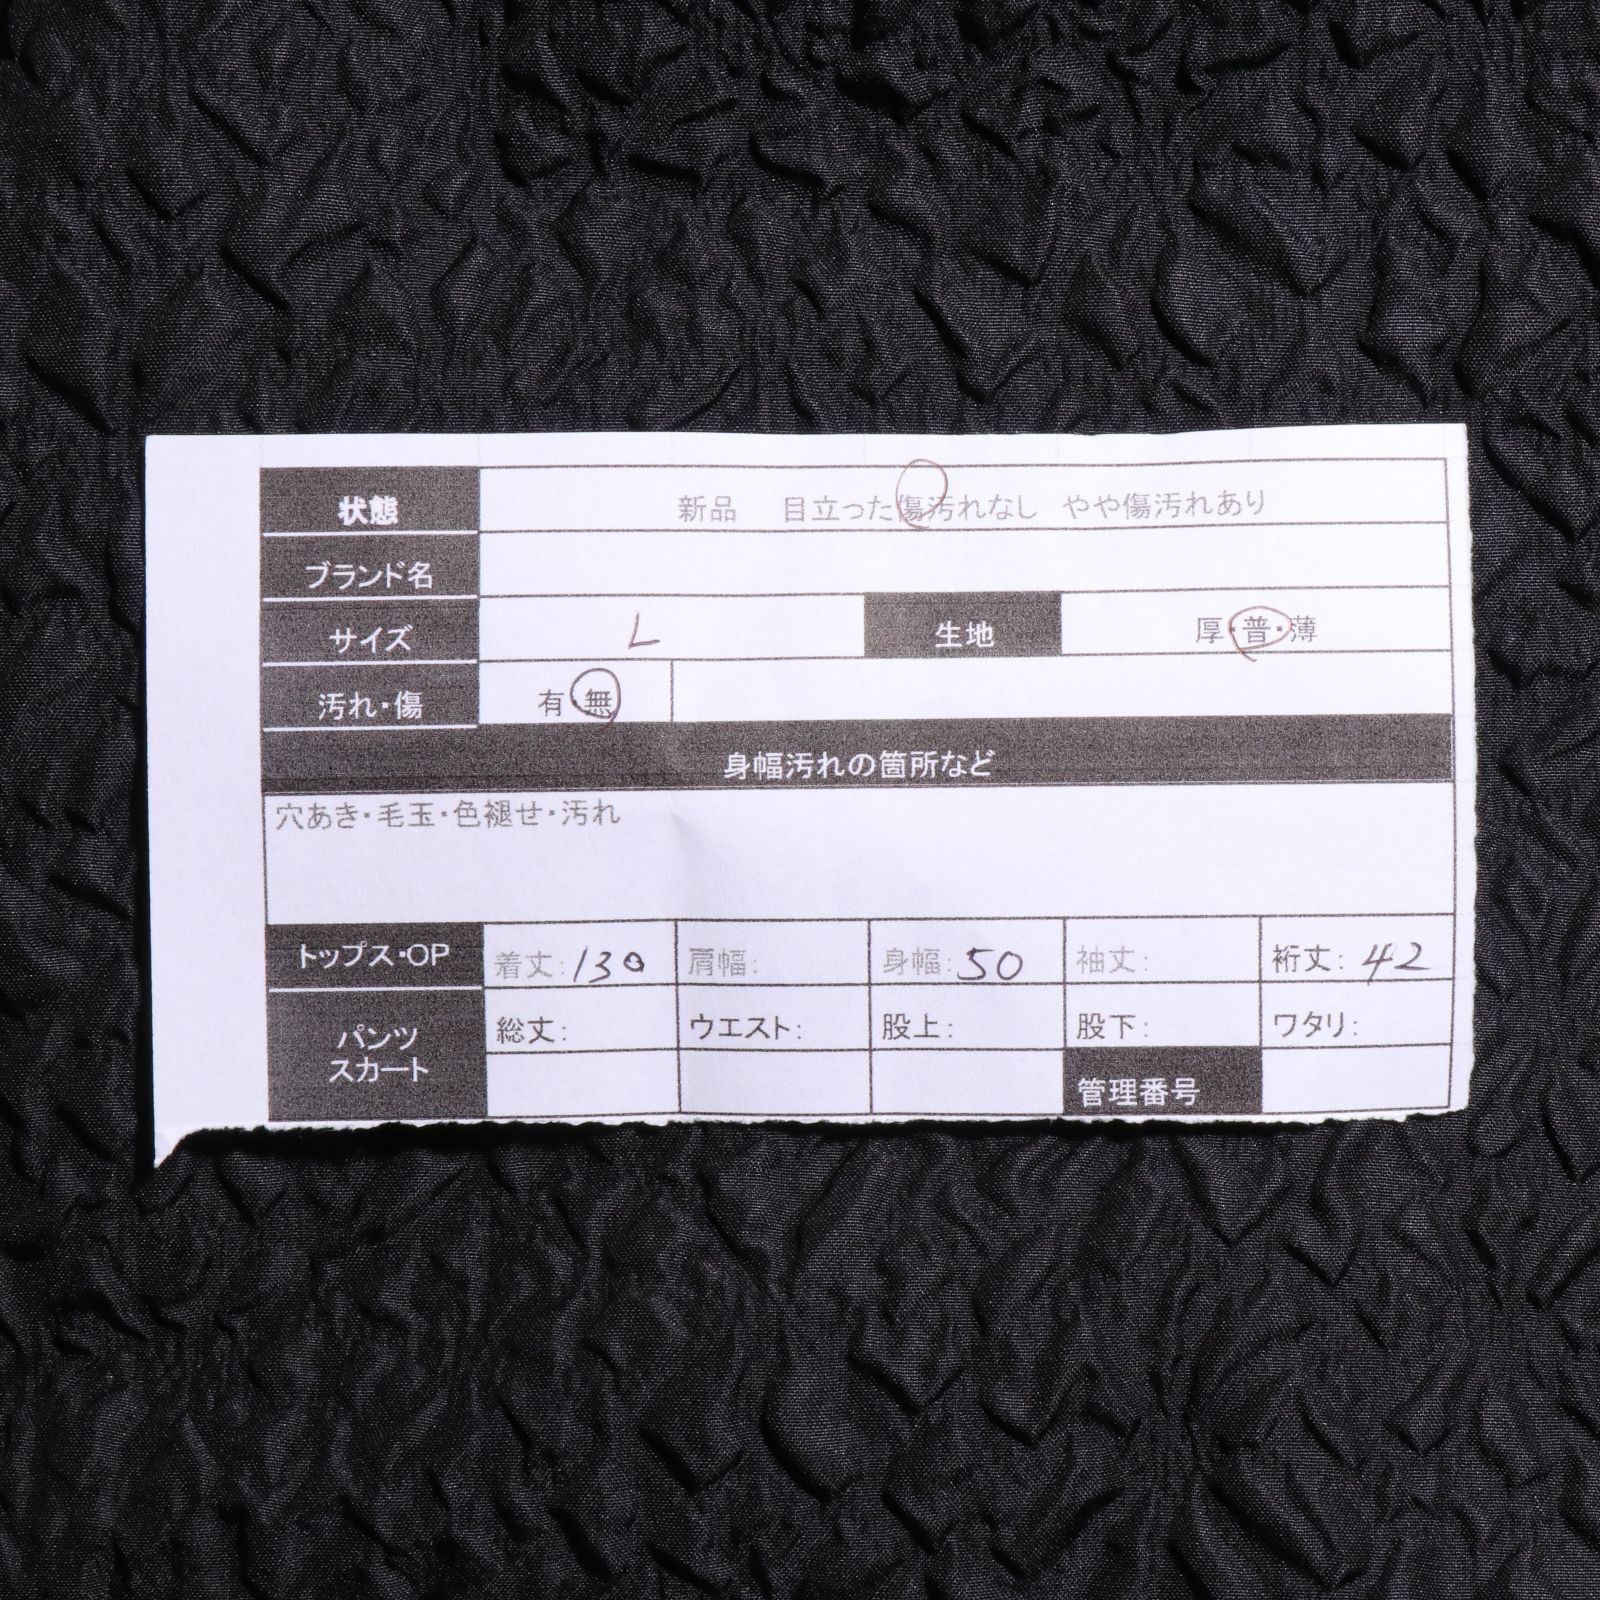 状態 新品 目立った傷汚れなし やや傷汚れあり
ブランド名
サイズ L 生地 厚・普・薄
汚れ・傷 有・無
身幅汚れの箇所など
穴あき・毛玉・色褪せ・汚れ
トップス・OP 着丈:130 肩幅: 身幅:50 袖丈: 裄丈:42
パンツ スカート 総丈: ウエスト: 股上: 股下: ワタリ:
管理番号